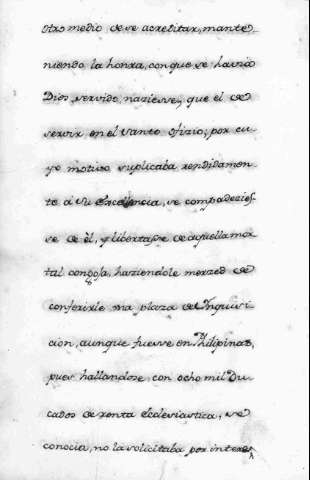 otro medio de se acreditar, mante-
niendo la honrra, con que se havia
Dios, servido, naziesse, que el de
servir en el santo ofizio; por cu-
yo motivo suplicaba rendidamen-
te â Su Excelencia, se compadezies-
se de êl, y libertasse de aquella mor-
tal congoja, haziendole merzed de
conferirle una plaza de Inquisi-
cion, aunque fuesse en Philipinas,
pues hallandose, con ocho mil Du-
cados de renta Ecclesiastica, se
conocia, no la solicitaba por interes